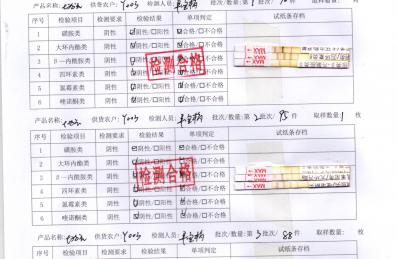 产品名称: 供货农户: Y005 检测人员: 批次/数量:第 批次/ 取样数量 枚
序号 检验项目 检测要求 检验结果 单项判定 试纸条存档
1 磺胺类 阴性 ☑阴性/□阳性 ☑合格/□不合格
2 大环内酯类 阴性 ☑阴性/□阳性 ☑合格/□不合格
3 β—内酰胺类 阴性 ☑阴性/□阳性 ☑合格/□不合格
4 四环素类 阴性 ☑阴性/□阳性 ☑合格/□不合格
5 氯霉素类 阴性 ☑阴性/□阳性 ☑合格/□不合格
6 喹诺酮类 阴性 ☑阴性/□阳性 ☑合格/□不合格
检测合格
MAX
MAX
产品名称: 供货农户: Y005 检测人员: 批次/数量:第2批次/ 95 件 取样数量1 枚
序号 检验项目 检测要求 检验结果 单项判定 试纸条存档
1 磺胺类 阴性 ☑阴性/□阳性 ☑合格/□不合格
2 大环内酯类 阴性 ☑阴性/□阳性 ☑合格/□不合格
3 β—内酰胺类 阴性 ☑阴性/□阳性 ☑合格/□不合格
4 四环素类 阴性 ☑阴性/□阳性 ☑合格/□不合格
5 氯霉素类 阴性 ☑阴性/□阳性 ☑合格/□不合格
6 喹诺酮类 阴性 ☑阴性/□阳性 ☑合格/□不合格
检测合格
MAX
MAX
产品名称: 供货农户: Y005 检测人员: 批次/数量:第3批次/ 88 件 取样数量: 枚
序号 检验项目 检测要求 检验结果 单项判定 试纸条存档